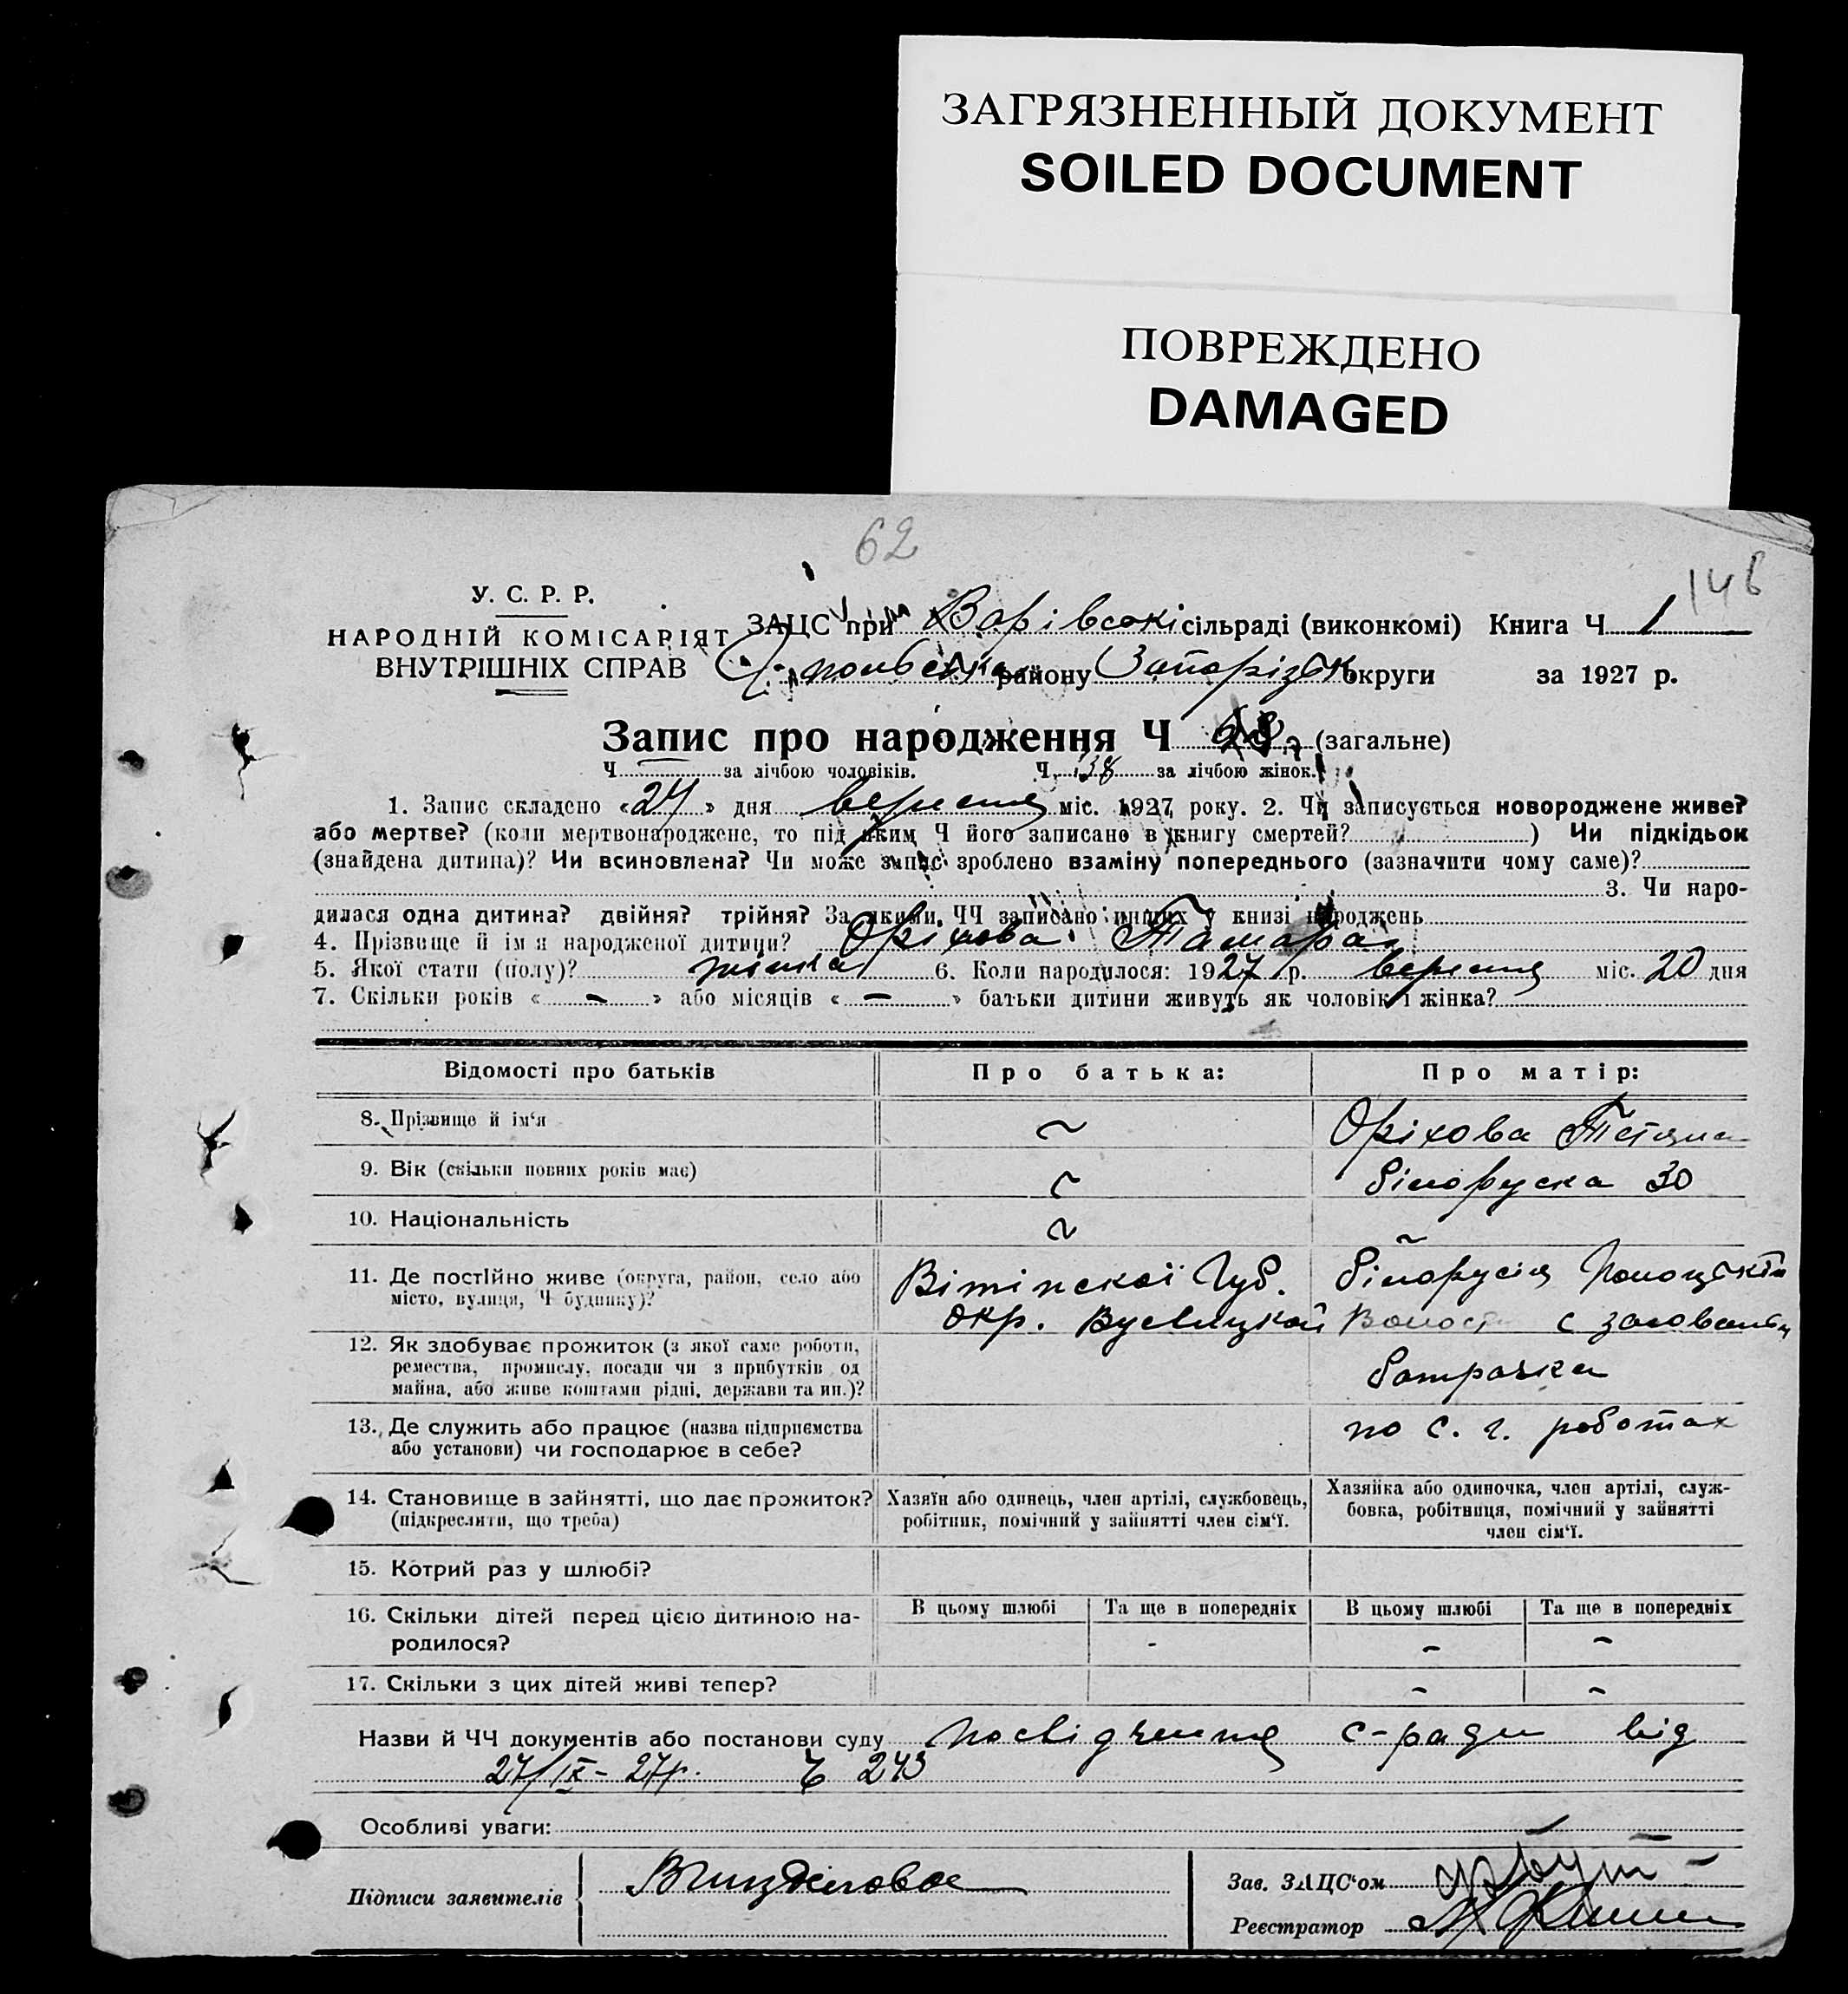 ЗАГРЯЗНЕННЫЙ ДОКУМЕНТ
SOILED DOCUMENT
ПОВРЕЖДЕНО
DAMAGED
62
146
У. С. Р. Р.
НАРОДНІЙ КОМІСАРІЯТ
ВНУТРІШНІХ СПРАВ
ЗАЦС при сільраді (виконкомі) Книга Ч 1
району Запорізьк округи за 1927 р.
Запис про народження Ч (загальне)
Ч за лічбою чоловіків. Ч 38 за лічбою жінок.
1. Запис складено «27» дня вересня міс. 1927 року. 2. Чи записується новороджене живе?
або мертве? (коли мертвонароджене, то під яким Ч його записано в книгу смертей? ) Чи підкідьок
(знайдена дитина)? Чи всиновлена? Чи може запис зроблено взаміну попереднього (зазначити чому саме)?
3. Чи наро-
дилася одна дитина? двійня? трійня? За якими ЧЧ записано инших у книзі народжень
4. Прізвище й ім'я народженої дитини? Оріхова Тамара
5. Якої стати (полу)? жінка 6. Коли народилося: 1927 р. вересня міс. 20 дня
7. Скільки років « – » або місяців « – » батьки дитини живуть як чоловік і жінка?
Відомості про батьків Про батька: Про матір:
8. Прізвище й ім'я ~ Оріхова Тетяна
9. Вік (скільки повних років має) ~ білоруска 30
10. Національність ~ ~
11. Де постійно живе (округа, район, село або Вітіпской Губ. Білорусія
місто, вулиця, Ч будинку)? окр. Волост с
12. Як здобуває прожиток (з якої саме роботи,
ремества, промислу, посади чи з прибутків од батрачка
майна, або живе коштами рідні, держави та ин.)?
13. Де служить або працює (назва підприємства по с. г. роботах
або установи) чи господарює в себе?
14. Становище в зайнятті, що дає прожиток? Хазяїн або одинець, член артілі, службовець, Хазяйка або одиночка, член артілі, служ-
(підкреслити, що треба) робітник, помічний у зайнятті член сім'ї. бовка, робітниця, помічний у зайнятті
член сім'ї.
15. Котрий раз у шлюбі?
16. Скільки дітей перед цією дитиною на- В цьому шлюбі Та ще в попередніх В цьому шлюбі Та ще в попередніх
родилося? - – –
17. Скільки з цих дітей живі тепер? – –
Назви й ЧЧ документів або постанови суду посвідчення с-ради від
27/IX – 27р. Ч 243
Особливі уваги:
Підписи заявителів
Зав. ЗАЦС'ом
Реєстратор